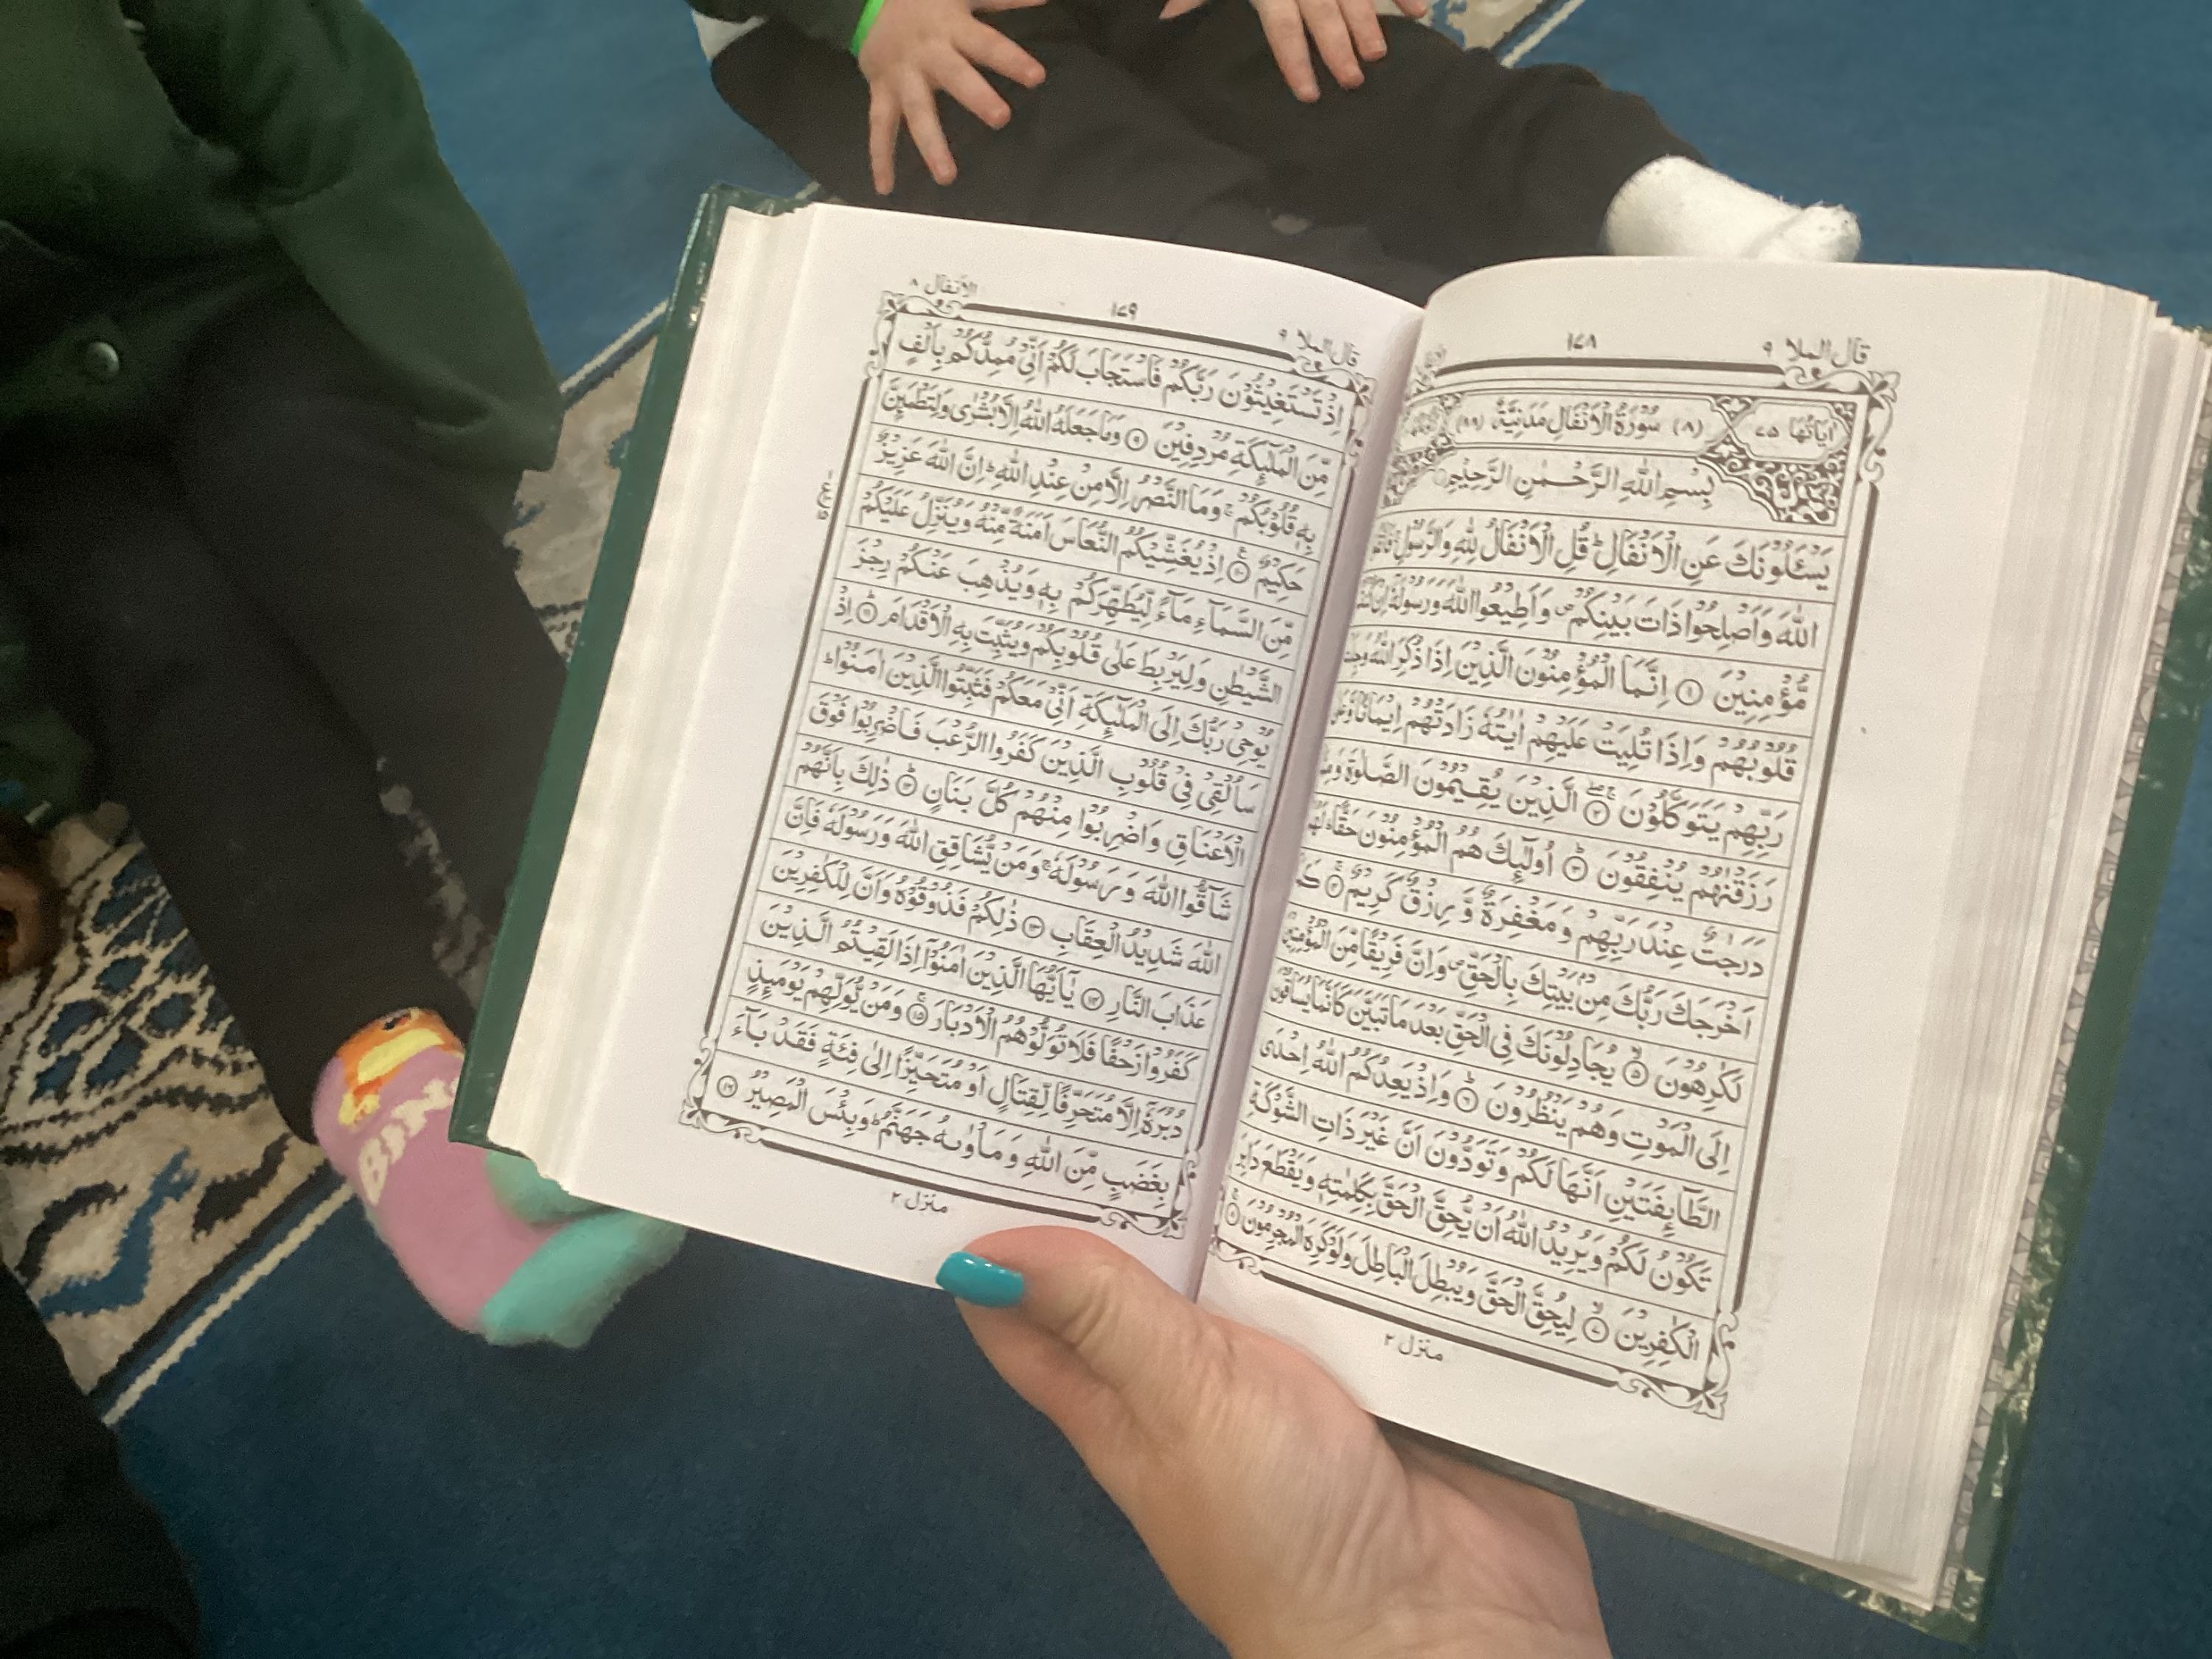 قال الملا ٩
١٧٨
اٰيَاتُهَا ٧٥
(٨) سُوْرَةُ الْاَنْفَالِ مَدَنِيَّةٌ (٨٨)
بِسْمِ اللّٰهِ الرَّحْمٰنِ الرَّحِيْمِ
يَسْـَٔلُوْنَكَ عَنِ الْاَنْفَالِ ؕ قُلِ الْاَنْفَالُ لِلّٰهِ وَالرَّسُوْلِ ۚ فَاتَّقُوا
اللّٰهَ وَاَصْلِحُوْا ذَاتَ بَيْنِكُمْ ۪ وَاَطِيْعُوا اللّٰهَ وَرَسُوْلَهٗۤ اِنْ كُنْتُمْ
مُّؤْمِنِيْنَ ۝۱ اِنَّمَا الْمُؤْمِنُوْنَ الَّذِيْنَ اِذَا ذُكِرَ اللّٰهُ وَجِلَتْ
قُلُوْبُهُمْ وَاِذَا تُلِيَتْ عَلَيْهِمْ اٰيٰتُهٗ زَادَتْهُمْ اِيْمَانًا وَّعَلٰى
رَبِّهِمْ يَتَوَكَّلُوْنَ ۝۲ الَّذِيْنَ يُقِيْمُوْنَ الصَّلٰوةَ وَمِمَّا
رَزَقْنٰهُمْ يُنْفِقُوْنَ ۝۳ اُولٰٓئِكَ هُمُ الْمُؤْمِنُوْنَ حَقًّا ؕ لَهُمْ
دَرَجٰتٌ عِنْدَ رَبِّهِمْ وَمَغْفِرَةٌ وَّرِزْقٌ كَرِيْمٌ ۝۴ كَمَاۤ
اَخْرَجَكَ رَبُّكَ مِنْۢ بَيْتِكَ بِالْحَقِّ ۪ وَاِنَّ فَرِيْقًا مِّنَ الْمُؤْمِنِيْنَ
لَكٰرِهُوْنَ ۝۵ يُجَادِلُوْنَكَ فِى الْحَقِّ بَعْدَ مَا تَبَيَّنَ كَاَنَّمَا يُسَاقُوْنَ
اِلَى الْمَوْتِ وَهُمْ يَنْظُرُوْنَ ۝۶ وَاِذْ يَعِدُكُمُ اللّٰهُ اِحْدَى
الطَّآئِفَتَيْنِ اَنَّهَا لَكُمْ وَتَوَدُّوْنَ اَنَّ غَيْرَ ذَاتِ الشَّوْكَةِ
تَكُوْنُ لَكُمْ وَيُرِيْدُ اللّٰهُ اَنْ يُّحِقَّ الْحَقَّ بِكَلِمٰتِهٖ وَيَقْطَعَ دَابِرَ
الْكٰفِرِيْنَ ۝۷ لِيُحِقَّ الْحَقَّ وَيُبْطِلَ الْبَاطِلَ وَلَوْ كَرِهَ الْمُجْرِمُوْنَ ۝۸
منزل ٢
قال الملا ٩
١٧٩
الانفال ٨
اِذْ تَسْتَغِيْثُوْنَ رَبَّكُمْ فَاسْتَجَابَ لَكُمْ اَنِّىْ مُمِدُّكُمْ بِاَلْفٍ
مِّنَ الْمَلٰٓئِكَةِ مُرْدِفِيْنَ ۝۹ وَمَا جَعَلَهُ اللّٰهُ اِلَّا بُشْرٰى وَلِتَطْمَئِنَّ
بِهٖ قُلُوْبُكُمْ ۚ وَمَا النَّصْرُ اِلَّا مِنْ عِنْدِ اللّٰهِ ؕ اِنَّ اللّٰهَ عَزِيْزٌ
حَكِيْمٌ ۝۱۰ اِذْ يُغَشِّيْكُمُ النُّعَاسَ اَمَنَةً مِّنْهُ وَيُنَزِّلُ عَلَيْكُمْ
مِّنَ السَّمَآءِ مَآءً لِّيُطَهِّرَكُمْ بِهٖ وَيُذْهِبَ عَنْكُمْ رِجْزَ
الشَّيْطٰنِ وَلِيَرْبِطَ عَلٰى قُلُوْبِكُمْ وَيُثَبِّتَ بِهِ الْاَقْدَامَ ۝۱۱ اِذْ
يُوْحِىْ رَبُّكَ اِلَى الْمَلٰٓئِكَةِ اَنِّىْ مَعَكُمْ فَثَبِّتُوا الَّذِيْنَ اٰمَنُوْا ؕ
سَاُلْقِىْ فِىْ قُلُوْبِ الَّذِيْنَ كَفَرُوا الرُّعْبَ فَاضْرِبُوْا فَوْقَ
الْاَعْنَاقِ وَاضْرِبُوْا مِنْهُمْ كُلَّ بَنَانٍ ۝۱۲ ذٰلِكَ بِاَنَّهُمْ
شَآقُّوا اللّٰهَ وَرَسُوْلَهٗ ۚ وَمَنْ يُّشَاقِقِ اللّٰهَ وَرَسُوْلَهٗ فَاِنَّ
اللّٰهَ شَدِيْدُ الْعِقَابِ ۝۱۳ ذٰلِكُمْ فَذُوْقُوْهُ وَاَنَّ لِلْكٰفِرِيْنَ
عَذَابَ النَّارِ ۝۱۴ يٰۤاَيُّهَا الَّذِيْنَ اٰمَنُوْۤا اِذَا لَقِيْتُمُ الَّذِيْنَ
كَفَرُوْا زَحْفًا فَلَا تُوَلُّوْهُمُ الْاَدْبَارَ ۝۱۵ وَمَنْ يُّوَلِّهِمْ يَوْمَئِذٍ
دُبُرَهٗۤ اِلَّا مُتَحَرِّفًا لِّقِتَالٍ اَوْ مُتَحَيِّزًا اِلٰى فِئَةٍ فَقَدْ بَآءَ
بِغَضَبٍ مِّنَ اللّٰهِ وَمَاْوٰىهُ جَهَنَّمُ ؕ وَبِئْسَ الْمَصِيْرُ ۝۱۶
منزل ٢